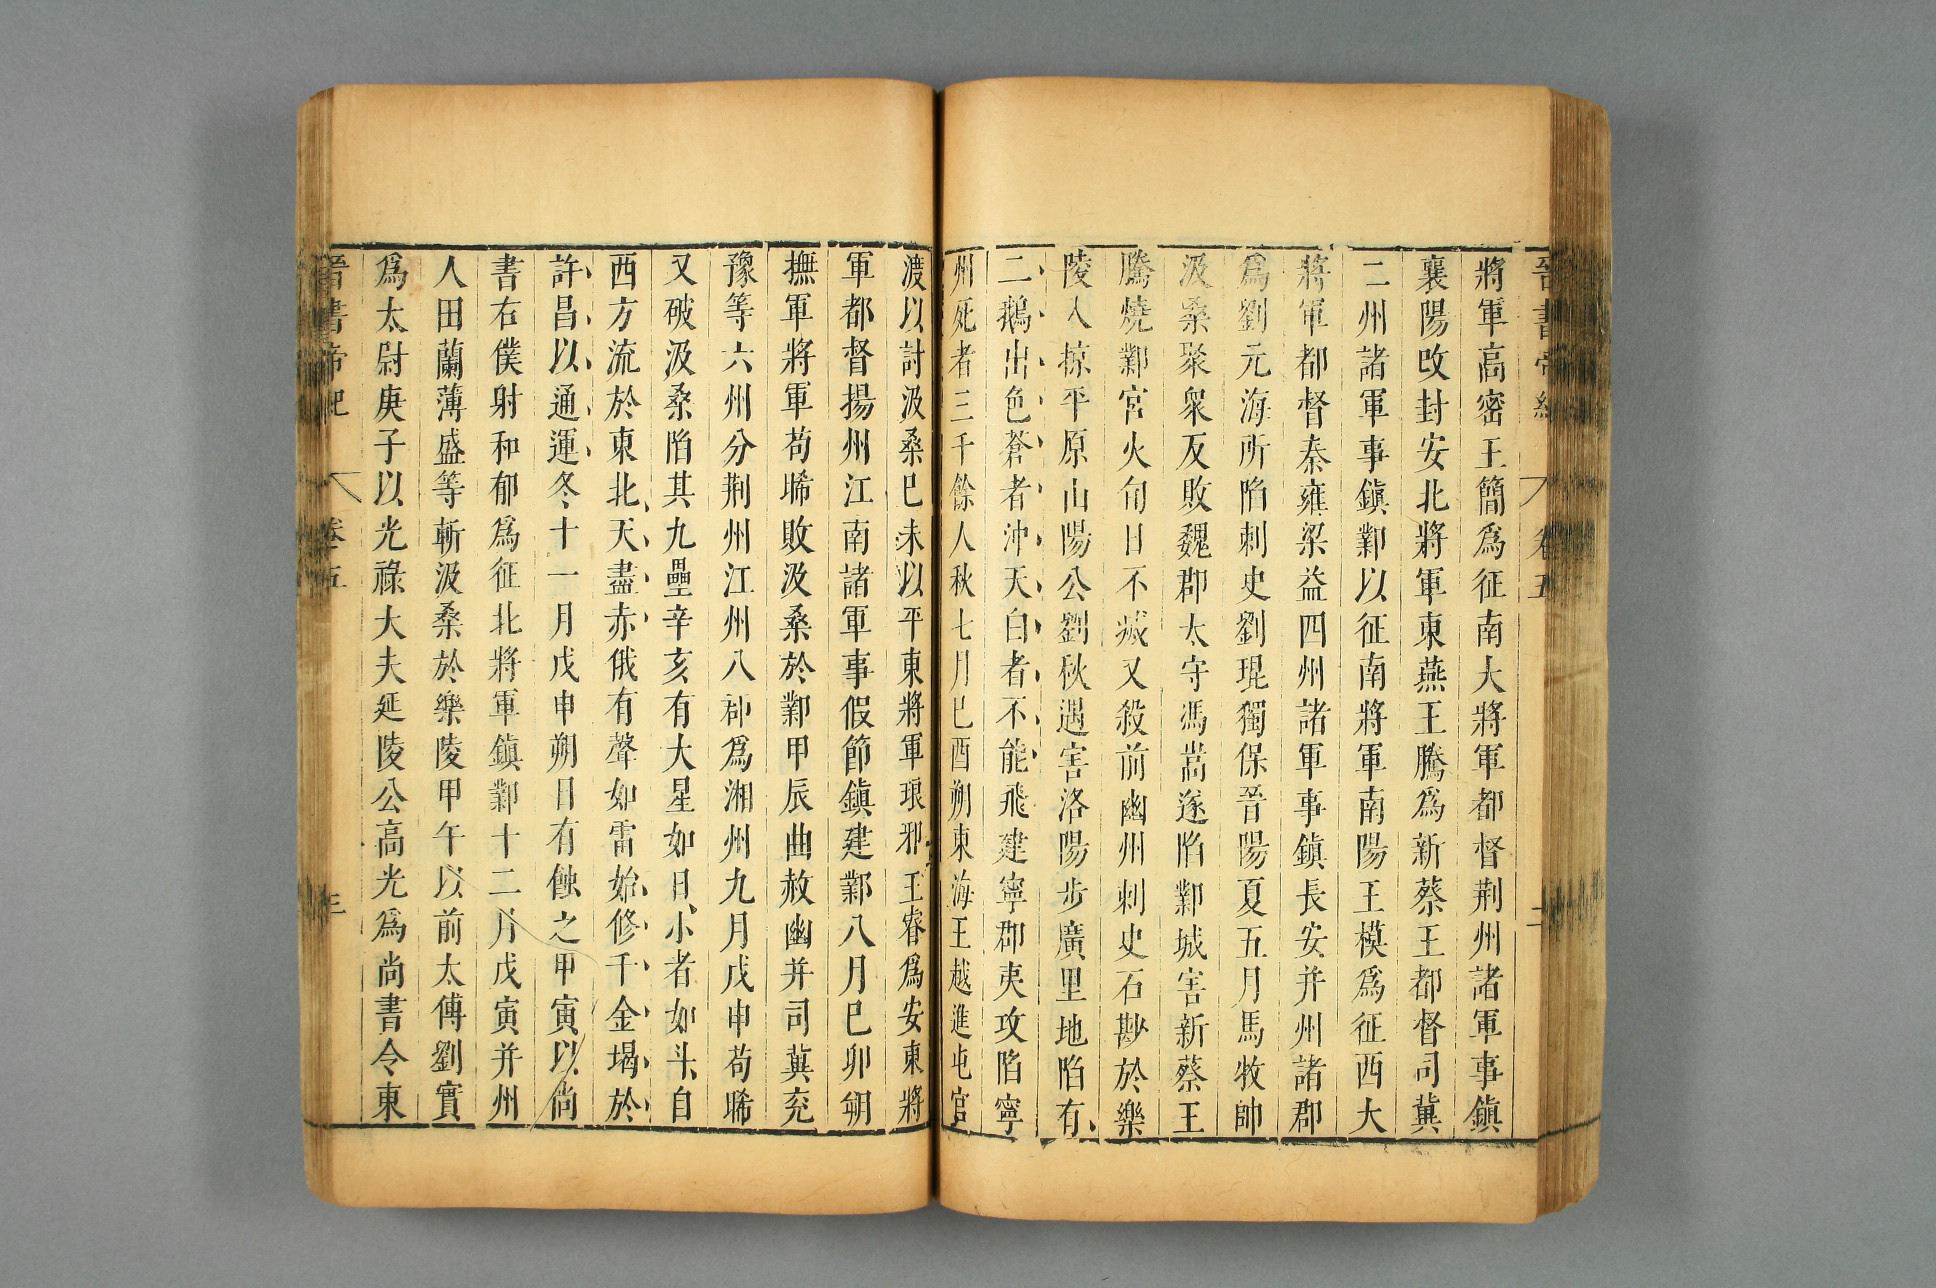 晉書帝紀 卷五 二
將軍高密王簡爲征南大將軍都督荆州諸軍事鎮
襄陽改封安北將軍東燕王騰爲新蔡王都督司冀
二州諸軍事鎮鄴以征南將軍南陽王模爲征西大
將軍都督秦雍梁益四州諸軍事鎮長安并州諸郡
爲劉元海所陷刺史劉琨獨保晉陽夏五月馬牧帥
汲桑聚衆反敗魏郡太守馮嵩遂陷鄴城害新蔡王
騰燒鄴宮火旬日不滅又殺前幽州刺史石尠於樂
陵入掠平原山陽公劉秋遇害洛陽步廣里地陷有
二鵝出色蒼者沖天白者不能飛建寧郡夷攻陷寧
州死者三千餘人秋七月已酉朔東海王越進屯官
渡以討汲桑已未以平東將軍琅邪王睿爲安東將
軍都督揚州江南諸軍事假節鎮建鄴八月已卯朔
撫軍將軍苟晞敗汲桑於鄴甲辰曲赦幽并司冀兖
豫等六州分荆州江州八郡爲湘州九月戊申苟晞
又破汲桑陷其九壘辛亥有大星如日小者如斗自
西方流於東北天盡赤俄有聲如雷始修千金堨於
許昌以通運冬十一月戊申朔日有蝕之甲寅以尚
書右僕射和郁爲征北將軍鎮鄴十二月戊寅并州
人田蘭薄盛等斬汲桑於樂陵甲午以前太傅劉實
爲太尉庚子以光祿大夫延陵公高光爲尚書令東
晉書帝紀 卷五 三